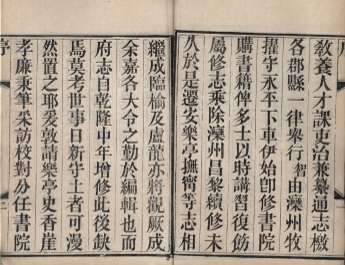 教養人才課吏治兼纂通志檄
各郡縣一律舉行智由灤州牧
擢守永平下車伊始卽修書院
購書籍俾多士以時講習復飭
屬修志乘除灤州昌黎續修未
久於是遷安樂亭撫甯等志相
繼成臨榆及盧龍亦將觀厥成
余嘉各大令之勤於編輯也而
府志自乾隆中年增修此後缺
焉莫考世事日新守土者可漫
然置之耶爰敦請樂亭史香崖
孝廉秉筆采訪校對分任書院